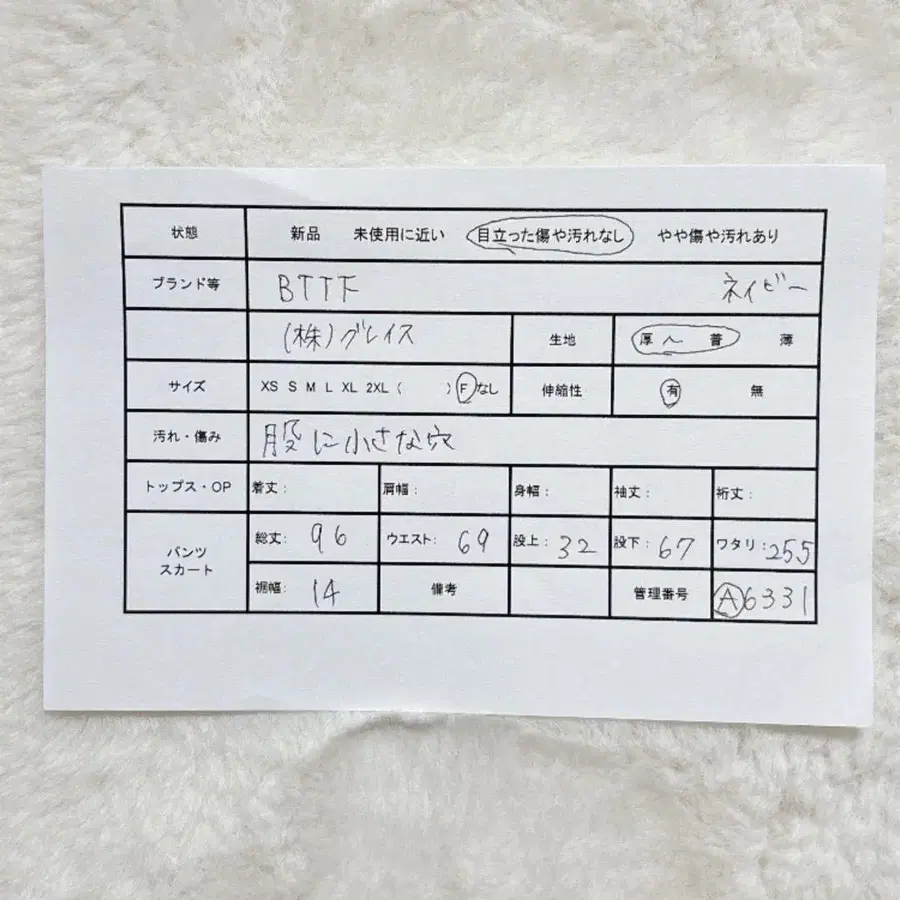 状態 新品 未使用に近い 目立った傷や汚れなし やや傷や汚れあり
ブランド等 BTTF ネイビー
(株)グレイス 生地 厚 〜 普 薄
サイズ XS S M L XL 2XL ( ) F なし 伸縮性 有 無
汚れ・傷み 股に小さな穴
トップス・OP 着丈: 肩幅: 身幅: 袖丈: 裄丈:
パンツ スカート 総丈: 96 ウエスト: 69 股上: 32 股下: 67 ワタリ: 255
裾幅: 14 備考 管理番号 A6331